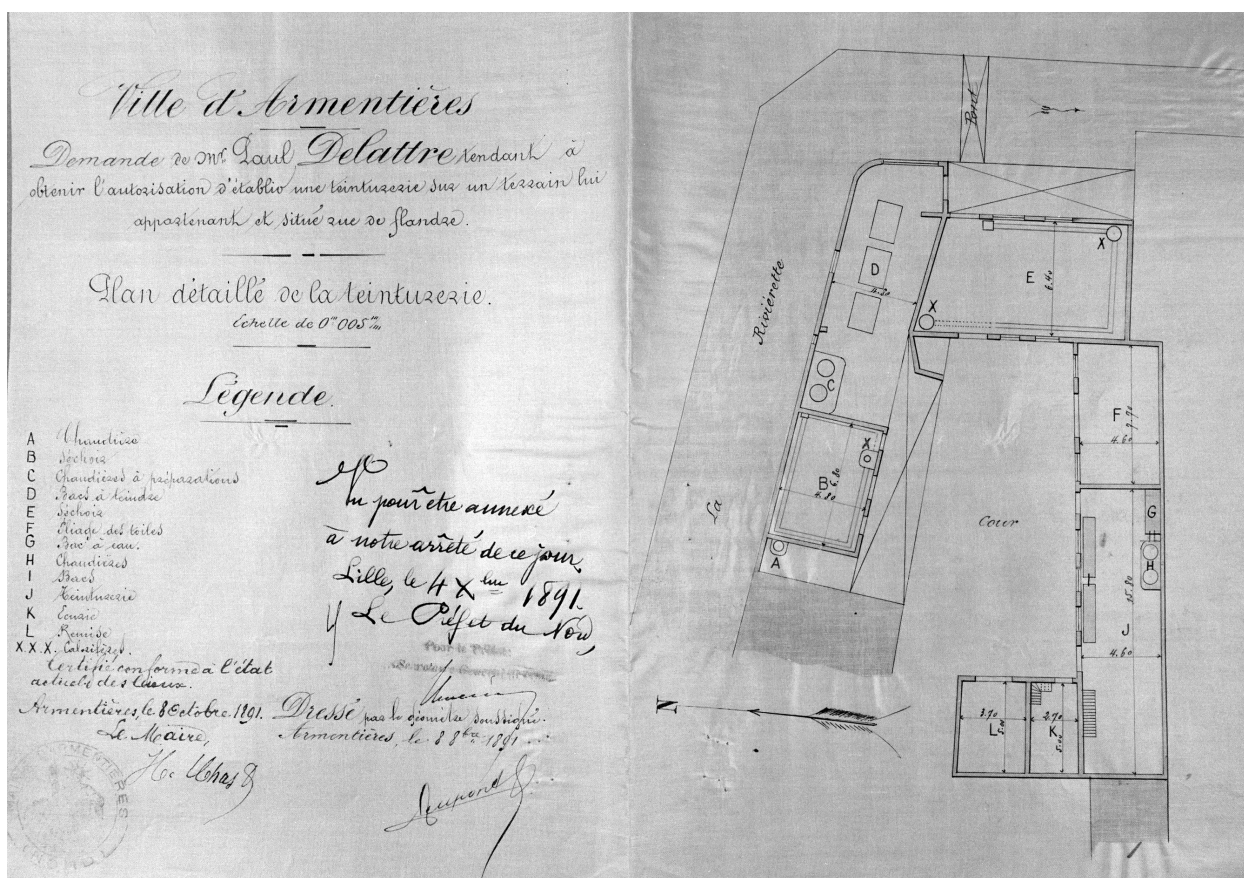 Ville d'Armentières
Demande de Mr Paul Delattre tendant à
obtenir l'autorisation d'établir une teinturerie sur un terrain lui
appartenant et situé rue de flandre.
Plan détaillé de la teinturerie.
Echelle de 0m005 m/m
Légende.
A Chaudière
B Séchoir
C Chaudières à préparations
D Bacs à teindre
E Séchoir
F Pliage des toiles
G Bac à eau.
H Chaudières
I Bacs
J Teinturerie
K Ecurie
L Remise
X.X.X. Calorifères.
Certifié conforme à l'état
actuel des lieux.
Armentières, le 8 Octobre 1891.
Le Maire,
Vu pour être annexé
à notre arrêté de ce jour,
Lille, le 4 Xbre 1891.
Le Préfet du Nord,
Pour le Préfet:
Dressé par le géomètre soussigné.
Armentières, le 8 8bre 1891
Dupont
Pont
La Rivièrette
D
4.20
C
X
E
6.40
X
F
4.60
7.90
X
B
6.80
4.80
A
Cour
G
H
I
15.80
J
4.60
N
3.70
L
5.00
2.70
K
5.00